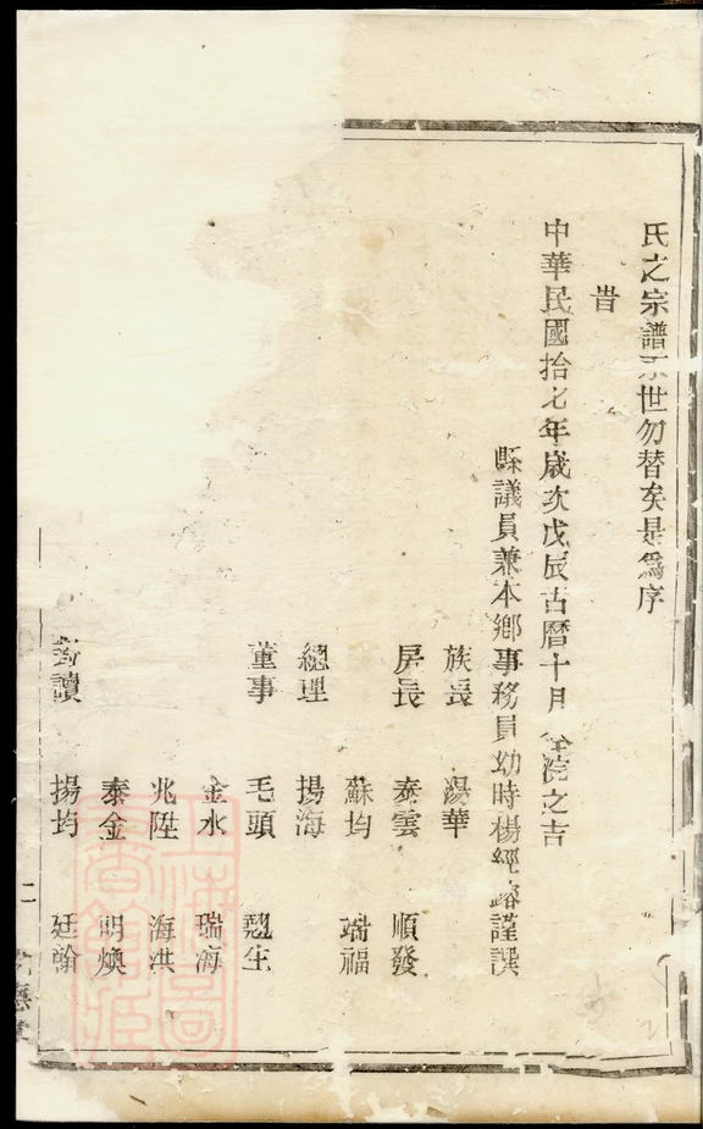 氏之宗譜永世勿替矣是爲序
旹
中華民國拾七年歲次戊辰古曆十月 浣之吉
縣議員兼本鄉事務員幼時楊經 謹譔
族長 湯華
房長 泰雲 順發
蘇均 端福
總理 揚海
董事 毛頭 生
金水 瑞海
兆陞 海洪
泰金 明煥
對讀 揚均 廷翰
二